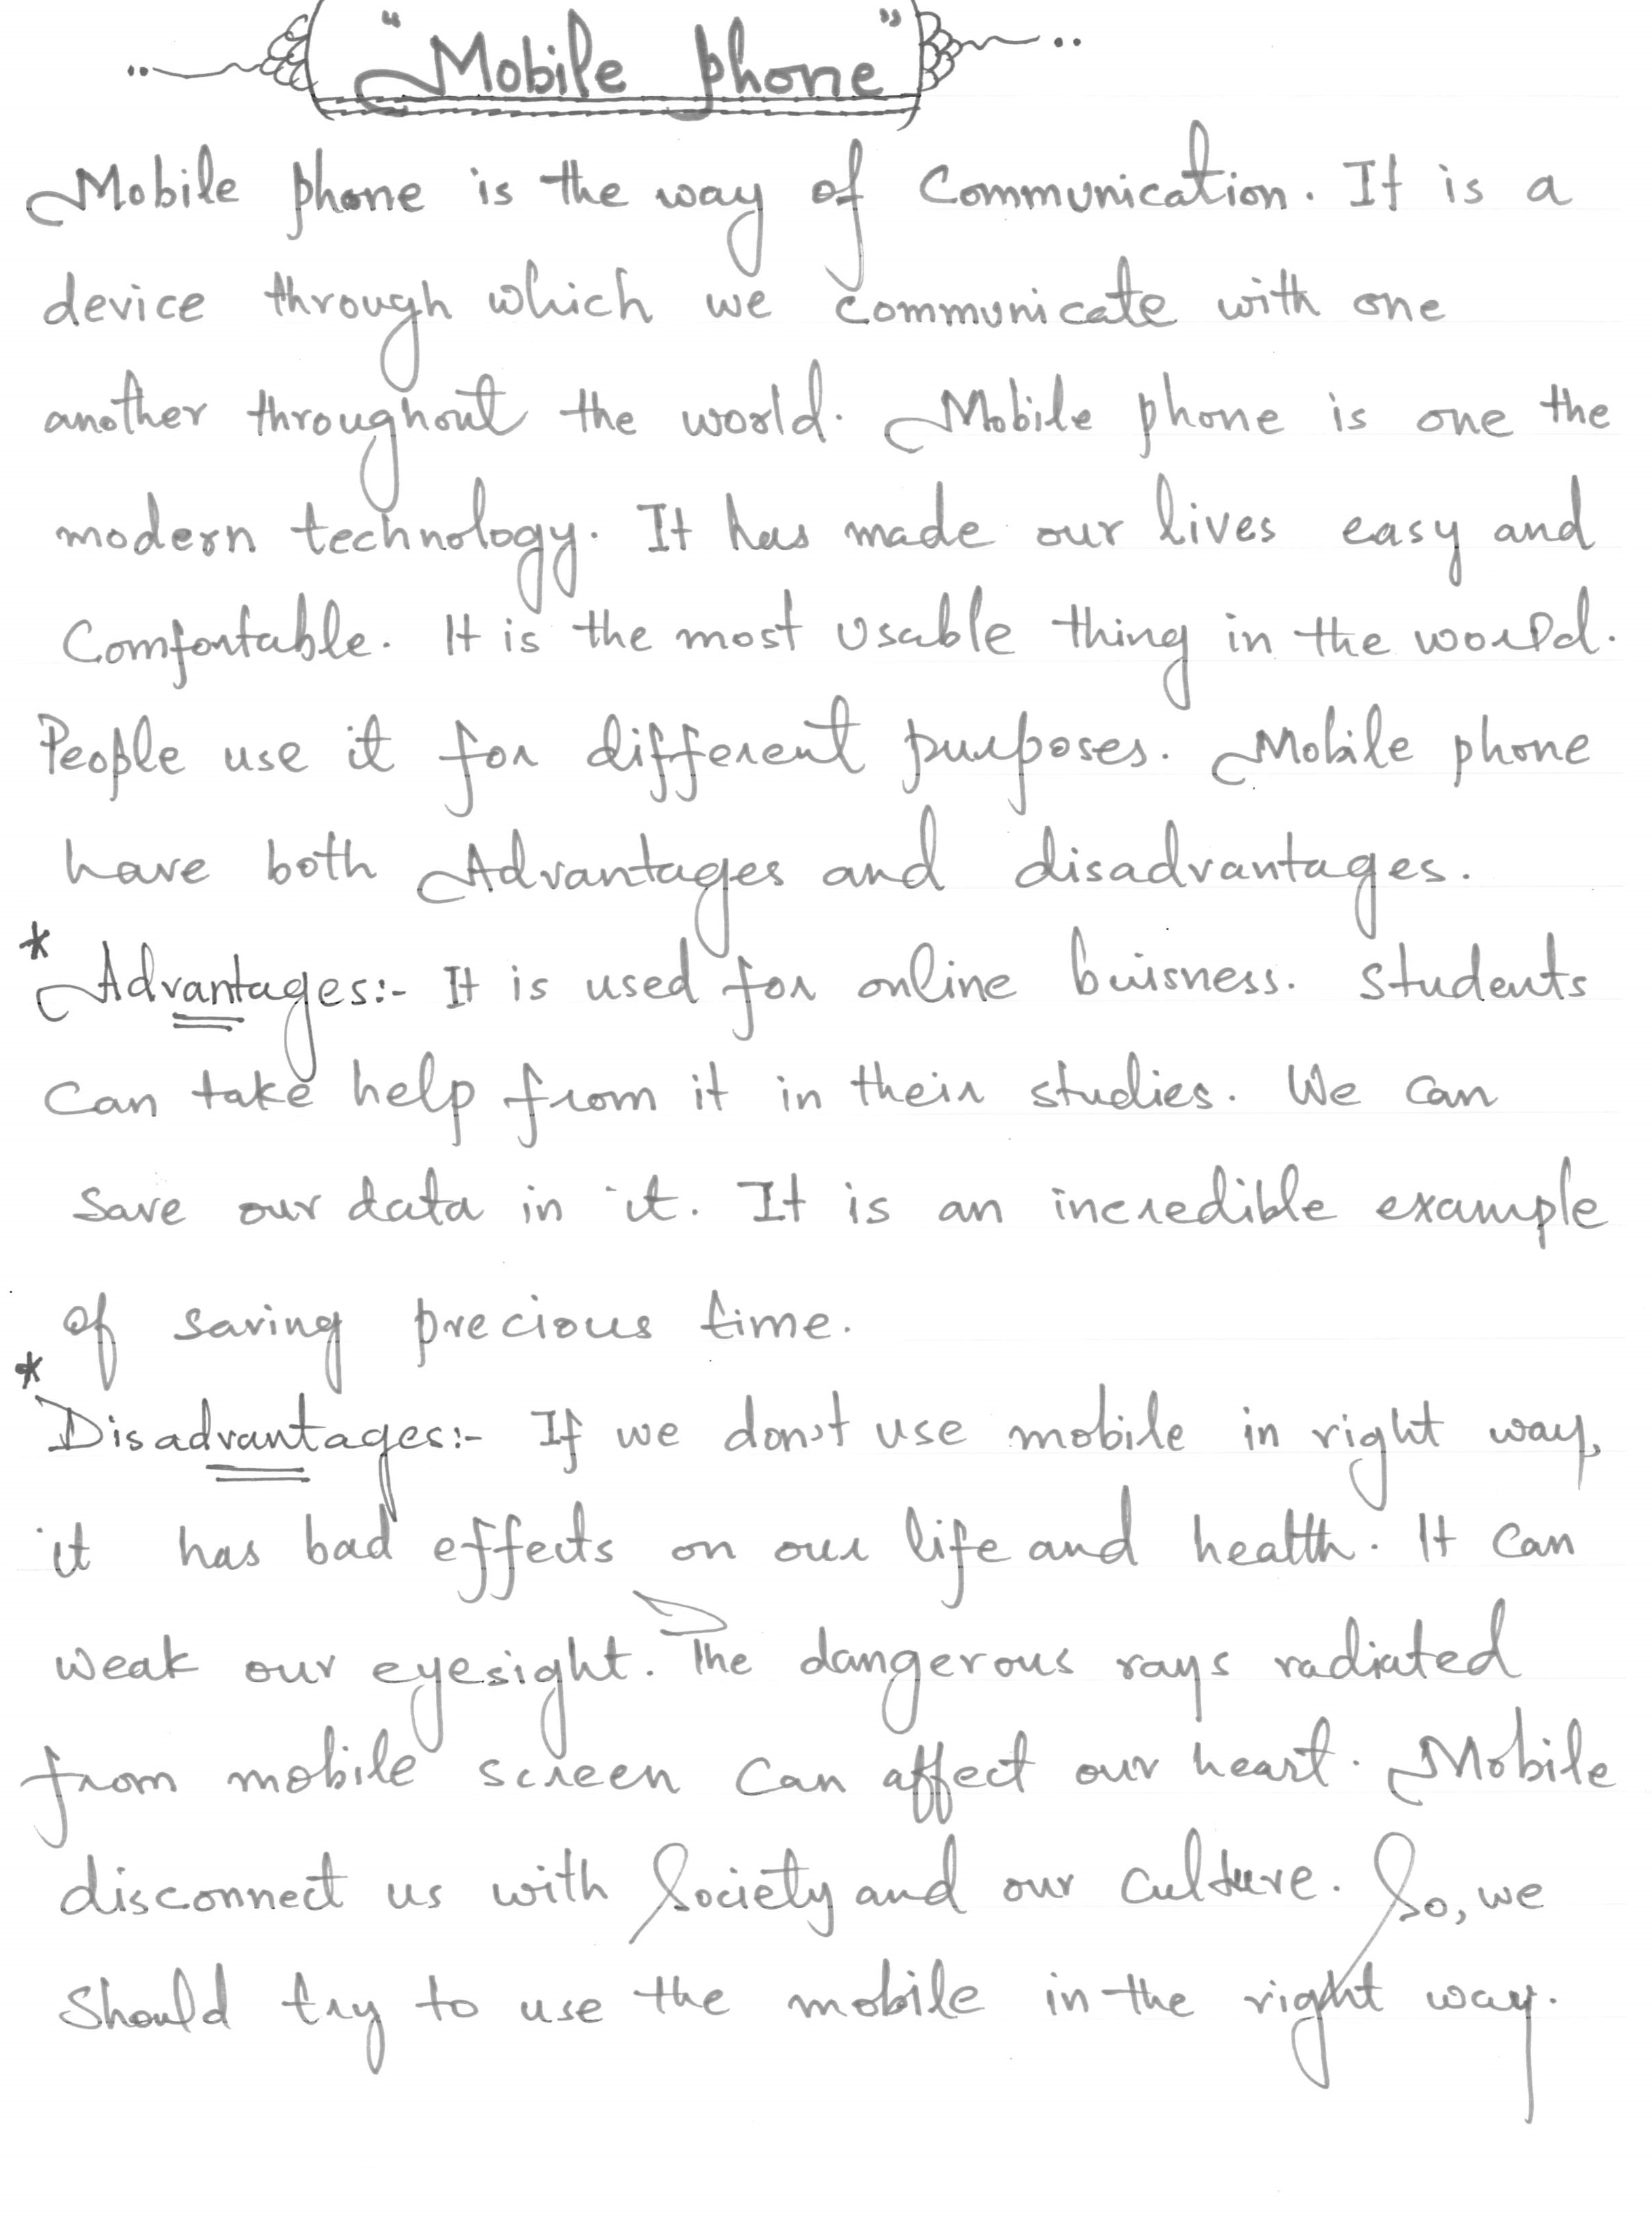 "Mobile phone"
Mobile phone is the way of Communication. It is a
device through which we communicate with one
another throughout the world. Mobile phone is one the
modern technology. It has made our lives easy and
Comfortable. It is the most usable thing in the world.
People use it for different purposes. Mobile phone
have both Advantages and disadvantages.
* Advantages:- It is used for online buisness. Students
Can take help from it in their studies. We can
save our data in it. It is an incredible example
of saving precious time.
* Disadvantages:- If we don't use mobile in right way,
it has bad effects on our life and health. It can
weak our eyesight. The dangerous rays radiated
from mobile screen can affect our heart. Mobile
disconnect us with Society and our culture. So, we
Should try to use the mobile in the right way.